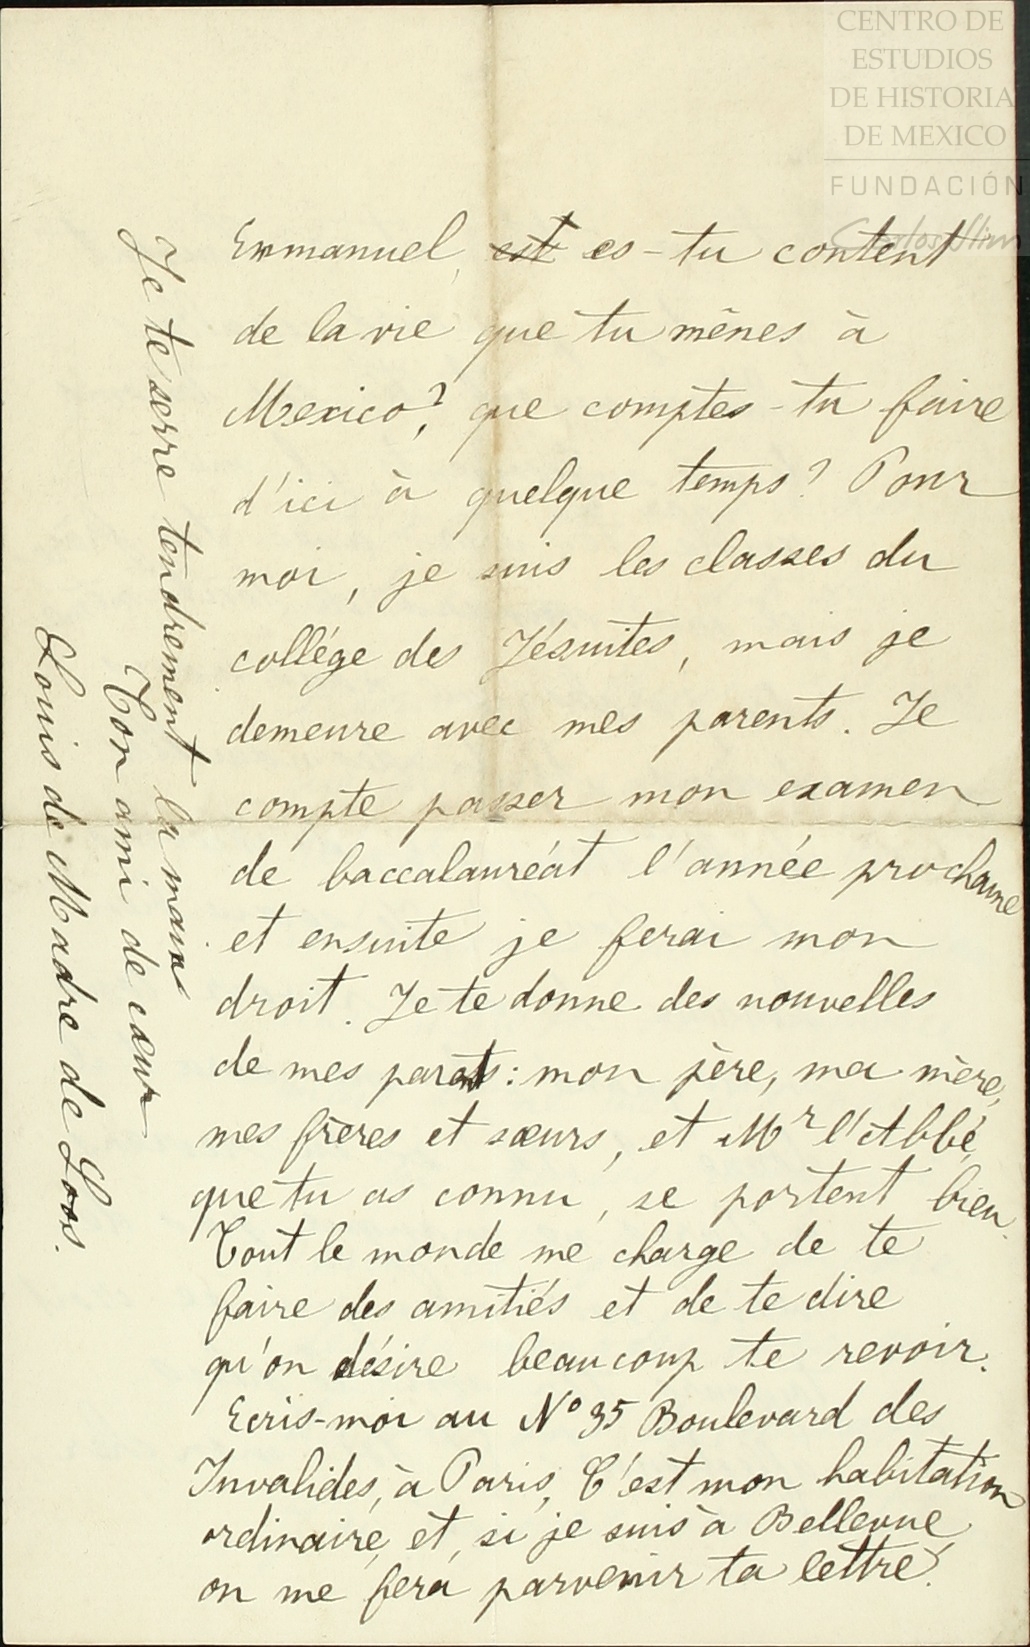 CENTRO DE
ESTUDIOS
DE HISTORIA
DE MEXICO
FUNDACIÓN
Carlos Slim
Emmanuel, est es-tu content
de la vie que tu mênes à
Mexico? que comptes-tu faire
d'ici à quelque temps? Pour
moi, je suis les classes du
collége des Jésuites, mais je
demeure avec mes parents. Je
compte passer mon examen
de baccalauréat l'année prochaine
et ensuite je ferai mon
droit. Je te donne des nouvelles
de mes parents: mon père, ma mère,
mes frères et sœurs, et Mr l'Abbé,
que tu as connu, se portent bien.
Tout le monde me charge de te
faire des amitiés et de te dire
qu'on désire beaucoup te revoir.
Ecris-moi au No 35 Boulevard des
Invalides, à Paris, C'est mon habitation
ordinaire, et, si je suis à Bellevue,
on me fera parvenir ta lettre.
Je te serre tendrement la main
Ton ami de cœur
Louis de Madre de Loos.